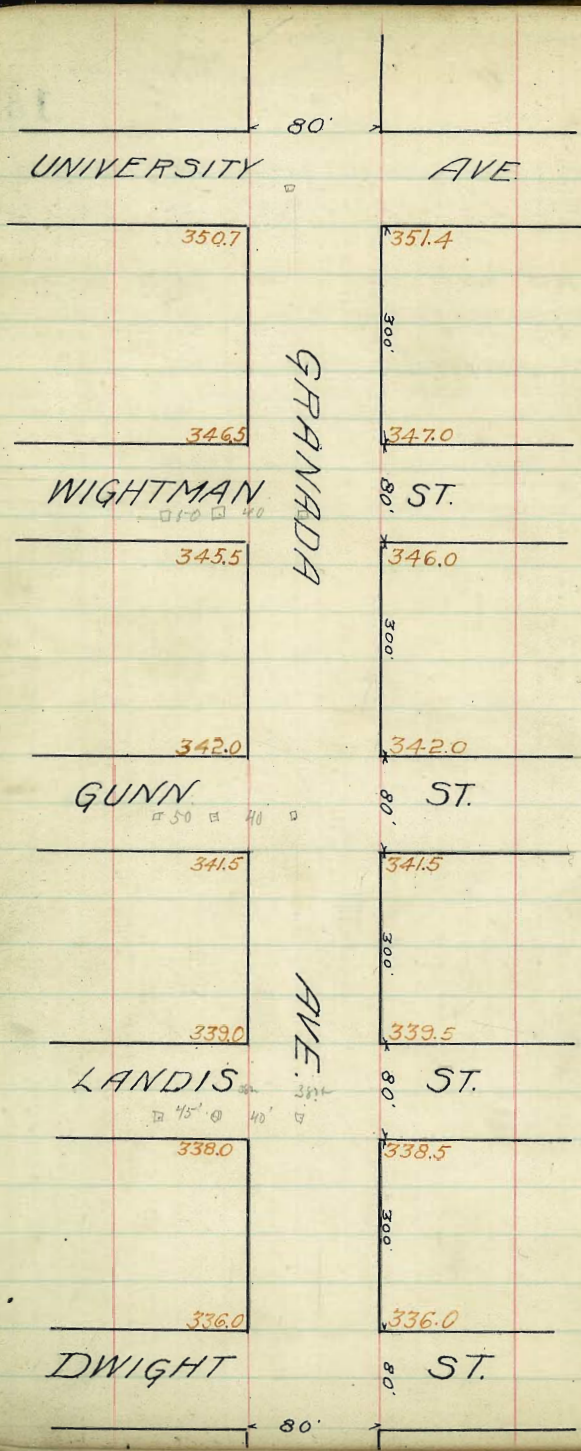 80'
UNIVERSITY AVE.
350.7 351.4
300'
GRANADA
346.5 347.0
WIGHTMAN 80' ST.
50 40
345.5 346.0
300'
342.0 342.0
GUNN 80' ST.
50 40
341.5 341.5
300'
AVE.
339.0 339.5
LANDIS 80' ST.
45' 40'
338.0 338.5
300'
336.0 336.0
DWIGHT 80' ST.
80'